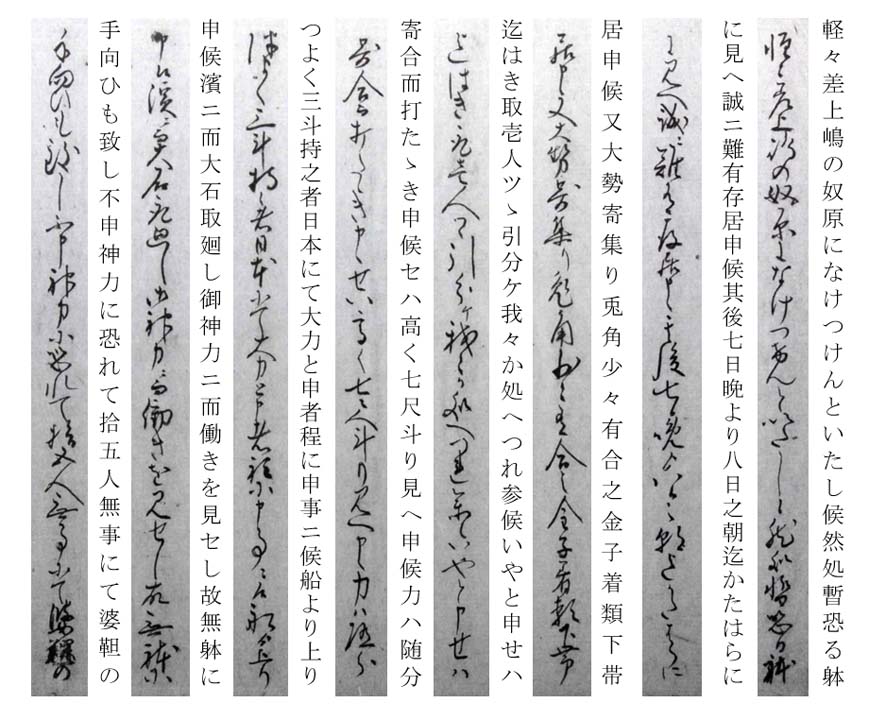 軽々差上嶋の奴原になけつけんといたし候然処暫恐る躰
に見へ誠ニ難有存居申候其後七日晩より八日之朝迄かたはらに
居申候又大勢寄集り兎角少々有合之金子着類下帯
迄はき取壱人ツヽ引分ケ我々か処へつれ参候いやと申せハ
寄合而打たゝき申候セハ高く七尺斗り見へ申候力ハ随分
つよく三斗持之者日本にて大力と申者程に申事ニ候船より上り
申候濱ニ而大石取廻し御神力ニ而働きを見セし故無躰に
手向ひも致し不申神力に恐れて拾五人無事にて婆靼の